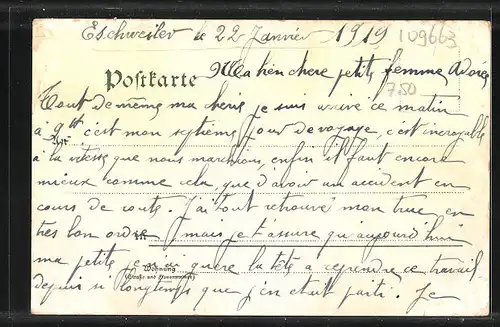 Eschweiler le 22 Janvier 1919 109663
Postkarte Ma bien chere petite femme Adorée
750
Tout de même ma cherie je suis arrivé ce matin
à 9h c'est mon septième jour de voyage, c'est incroyable
à la vitesse que nous marchions, enfin il faut encore
mieux comme cela, que d'avoir un accident en
cours de route. J'ai tout retrouvé mon truc en
très bon ordre, mais je t'assure qu'aujourd'hui
ma petite, je n'ai guère la tête à reprendre ce travail
Wohnung
(Straße und Hausnummer)
depuis si longtemps que j'en étais parti. Je